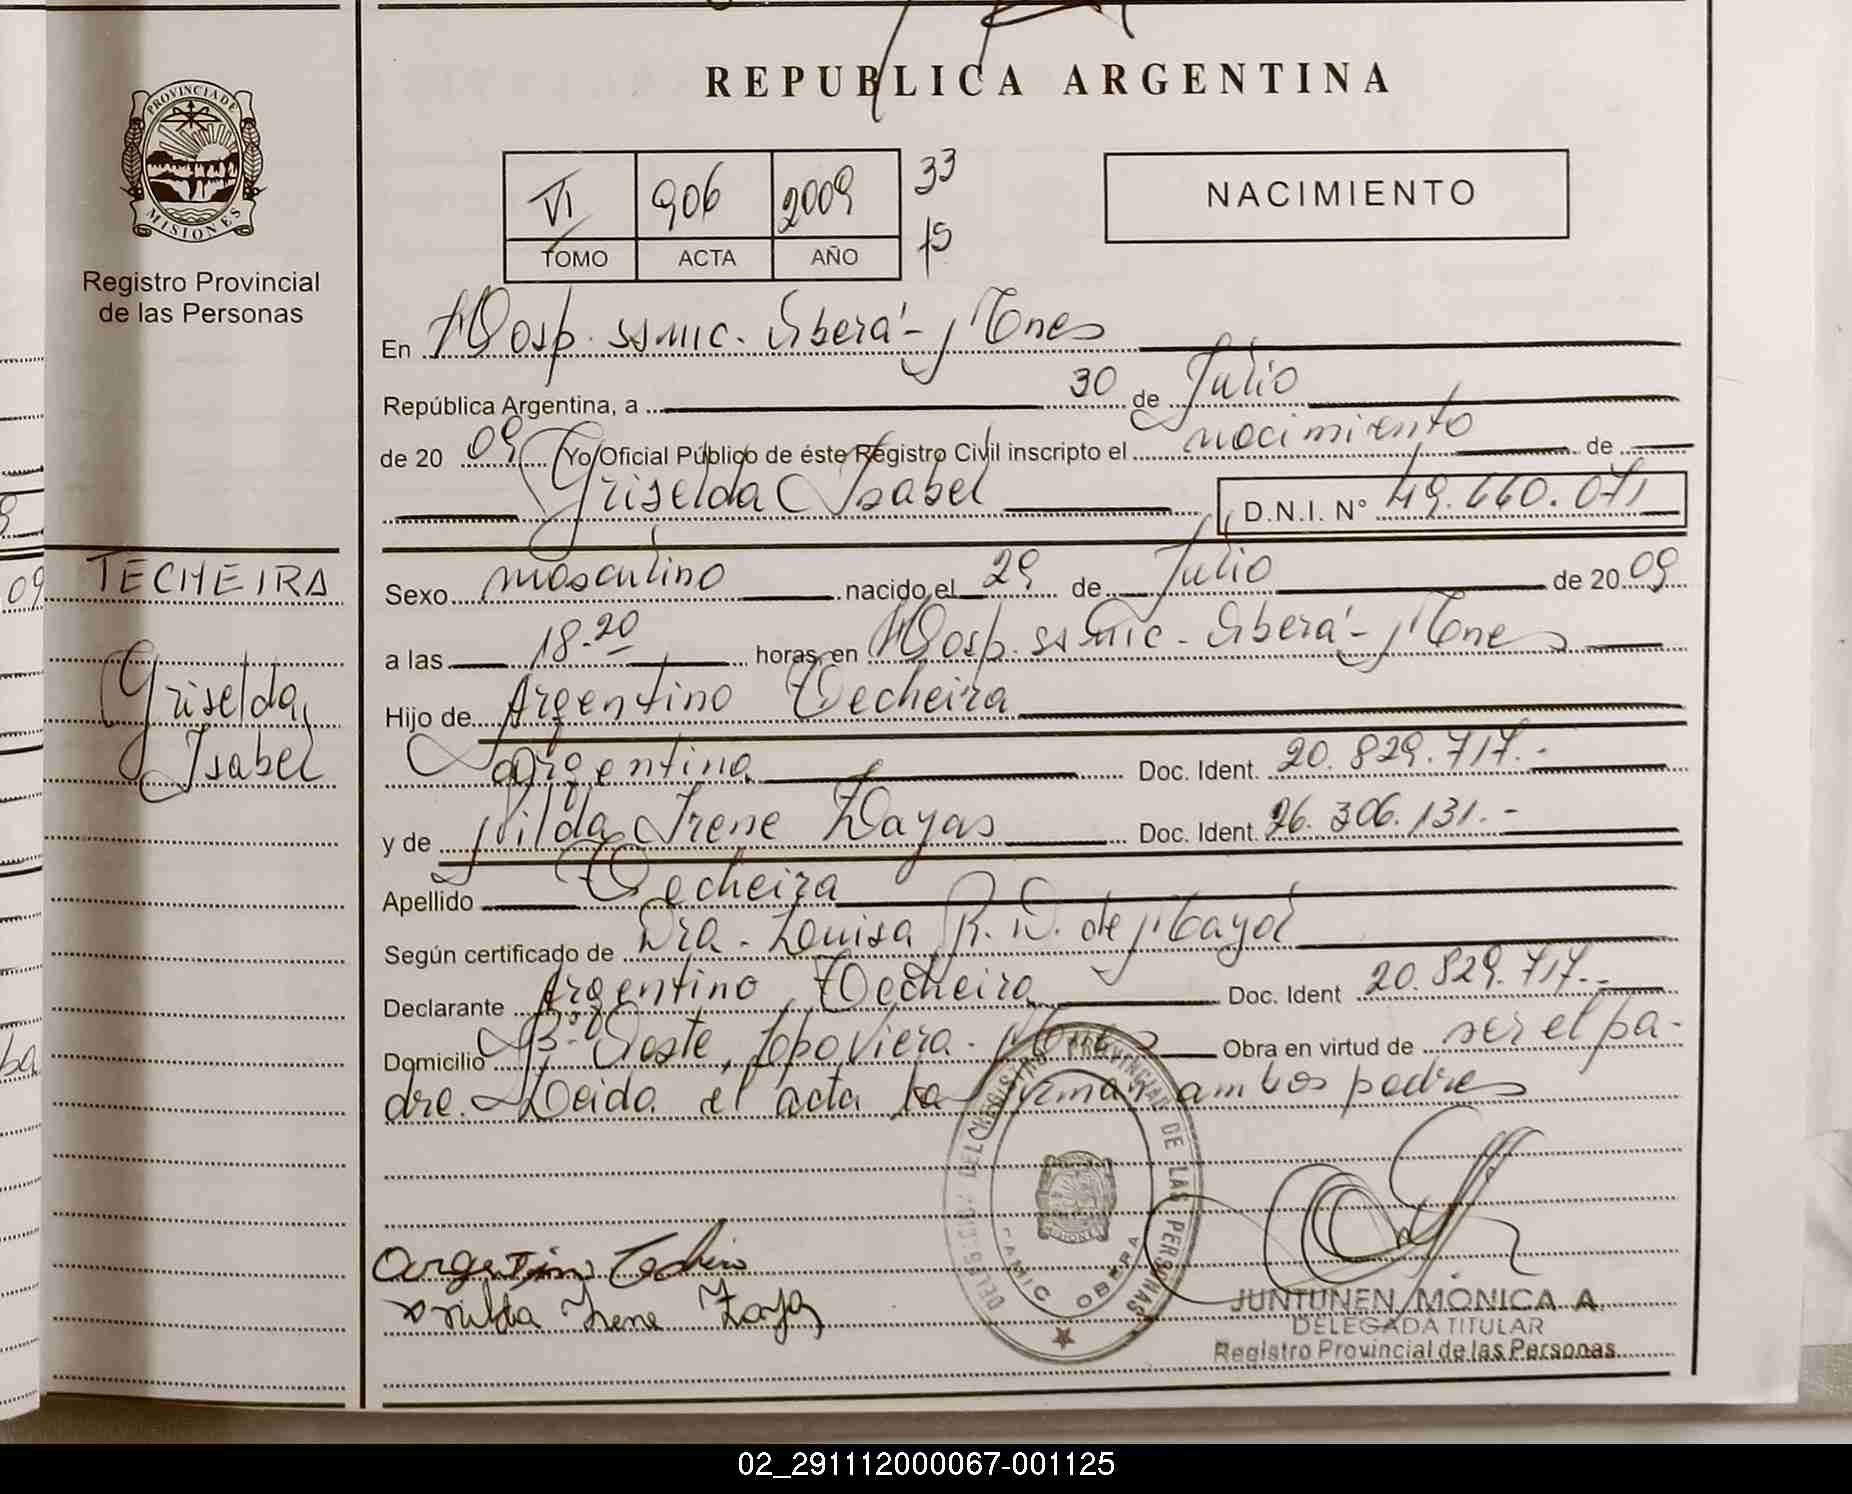 REPUBLICA ARGENTINA
PROVINCIA DE
MISIONES
Registro Provincial
de las Personas
VI 906 2009 33
TOMO ACTA AÑO 15
NACIMIENTO
En Hosp. SSMIC. Oberá - Mnes
República Argentina, a 30 de Julio
de 20 09 Yo Oficial Público de éste Registro Civil inscripto el nacimiento de
Griselda Isabel D.N.I. Nº 49.660.071
TECHEIRA
Griselda
Isabel
Sexo masculino nacido el 29 de Julio de 20 09
a las 18.20 horas, en Hosp. SSMIC - Oberá - Mnes
Hijo de Argentino Techeira
argentina Doc. Ident. 20.829.717.-
y de Nilda Irene Zayas Doc. Ident. 26.306.131.-
Apellido Techeira
Según certificado de Dra. Louisa R. D. de Mayol
Declarante Argentino Techeira Doc. Ident 20.829.717.-
Domicilio Oeste, Topo Viera - Mnes Obra en virtud de ser el pa-
dre. Leida el acta la firman ambos padres
DELEGACION DEL REGISTRO PROVINCIAL DE LAS PERSONAS
OBERA
Argentino Techeira
Nilda Irene Zayas
JUNTUNEN, MONICA A.
DELEGADA TITULAR
Registro Provincial de las Personas
02_291112000067-001125